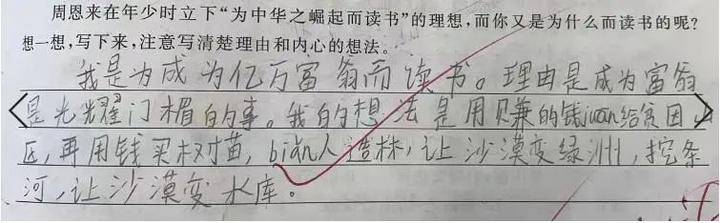 周恩来在年少时立下“为中华之崛起而读书”的理想,而你又是为什么而读书的呢?
想一想,写下来,注意写清楚理由和内心的想法。
我是为成为亿万富翁而读书。理由是成为富翁
是光耀门楣的事。我的想法是用赚的钱juan给贫困山
区,再用钱买树苗,biān人造林,让沙漠变绿洲,挖条
河,让沙漠变水库。